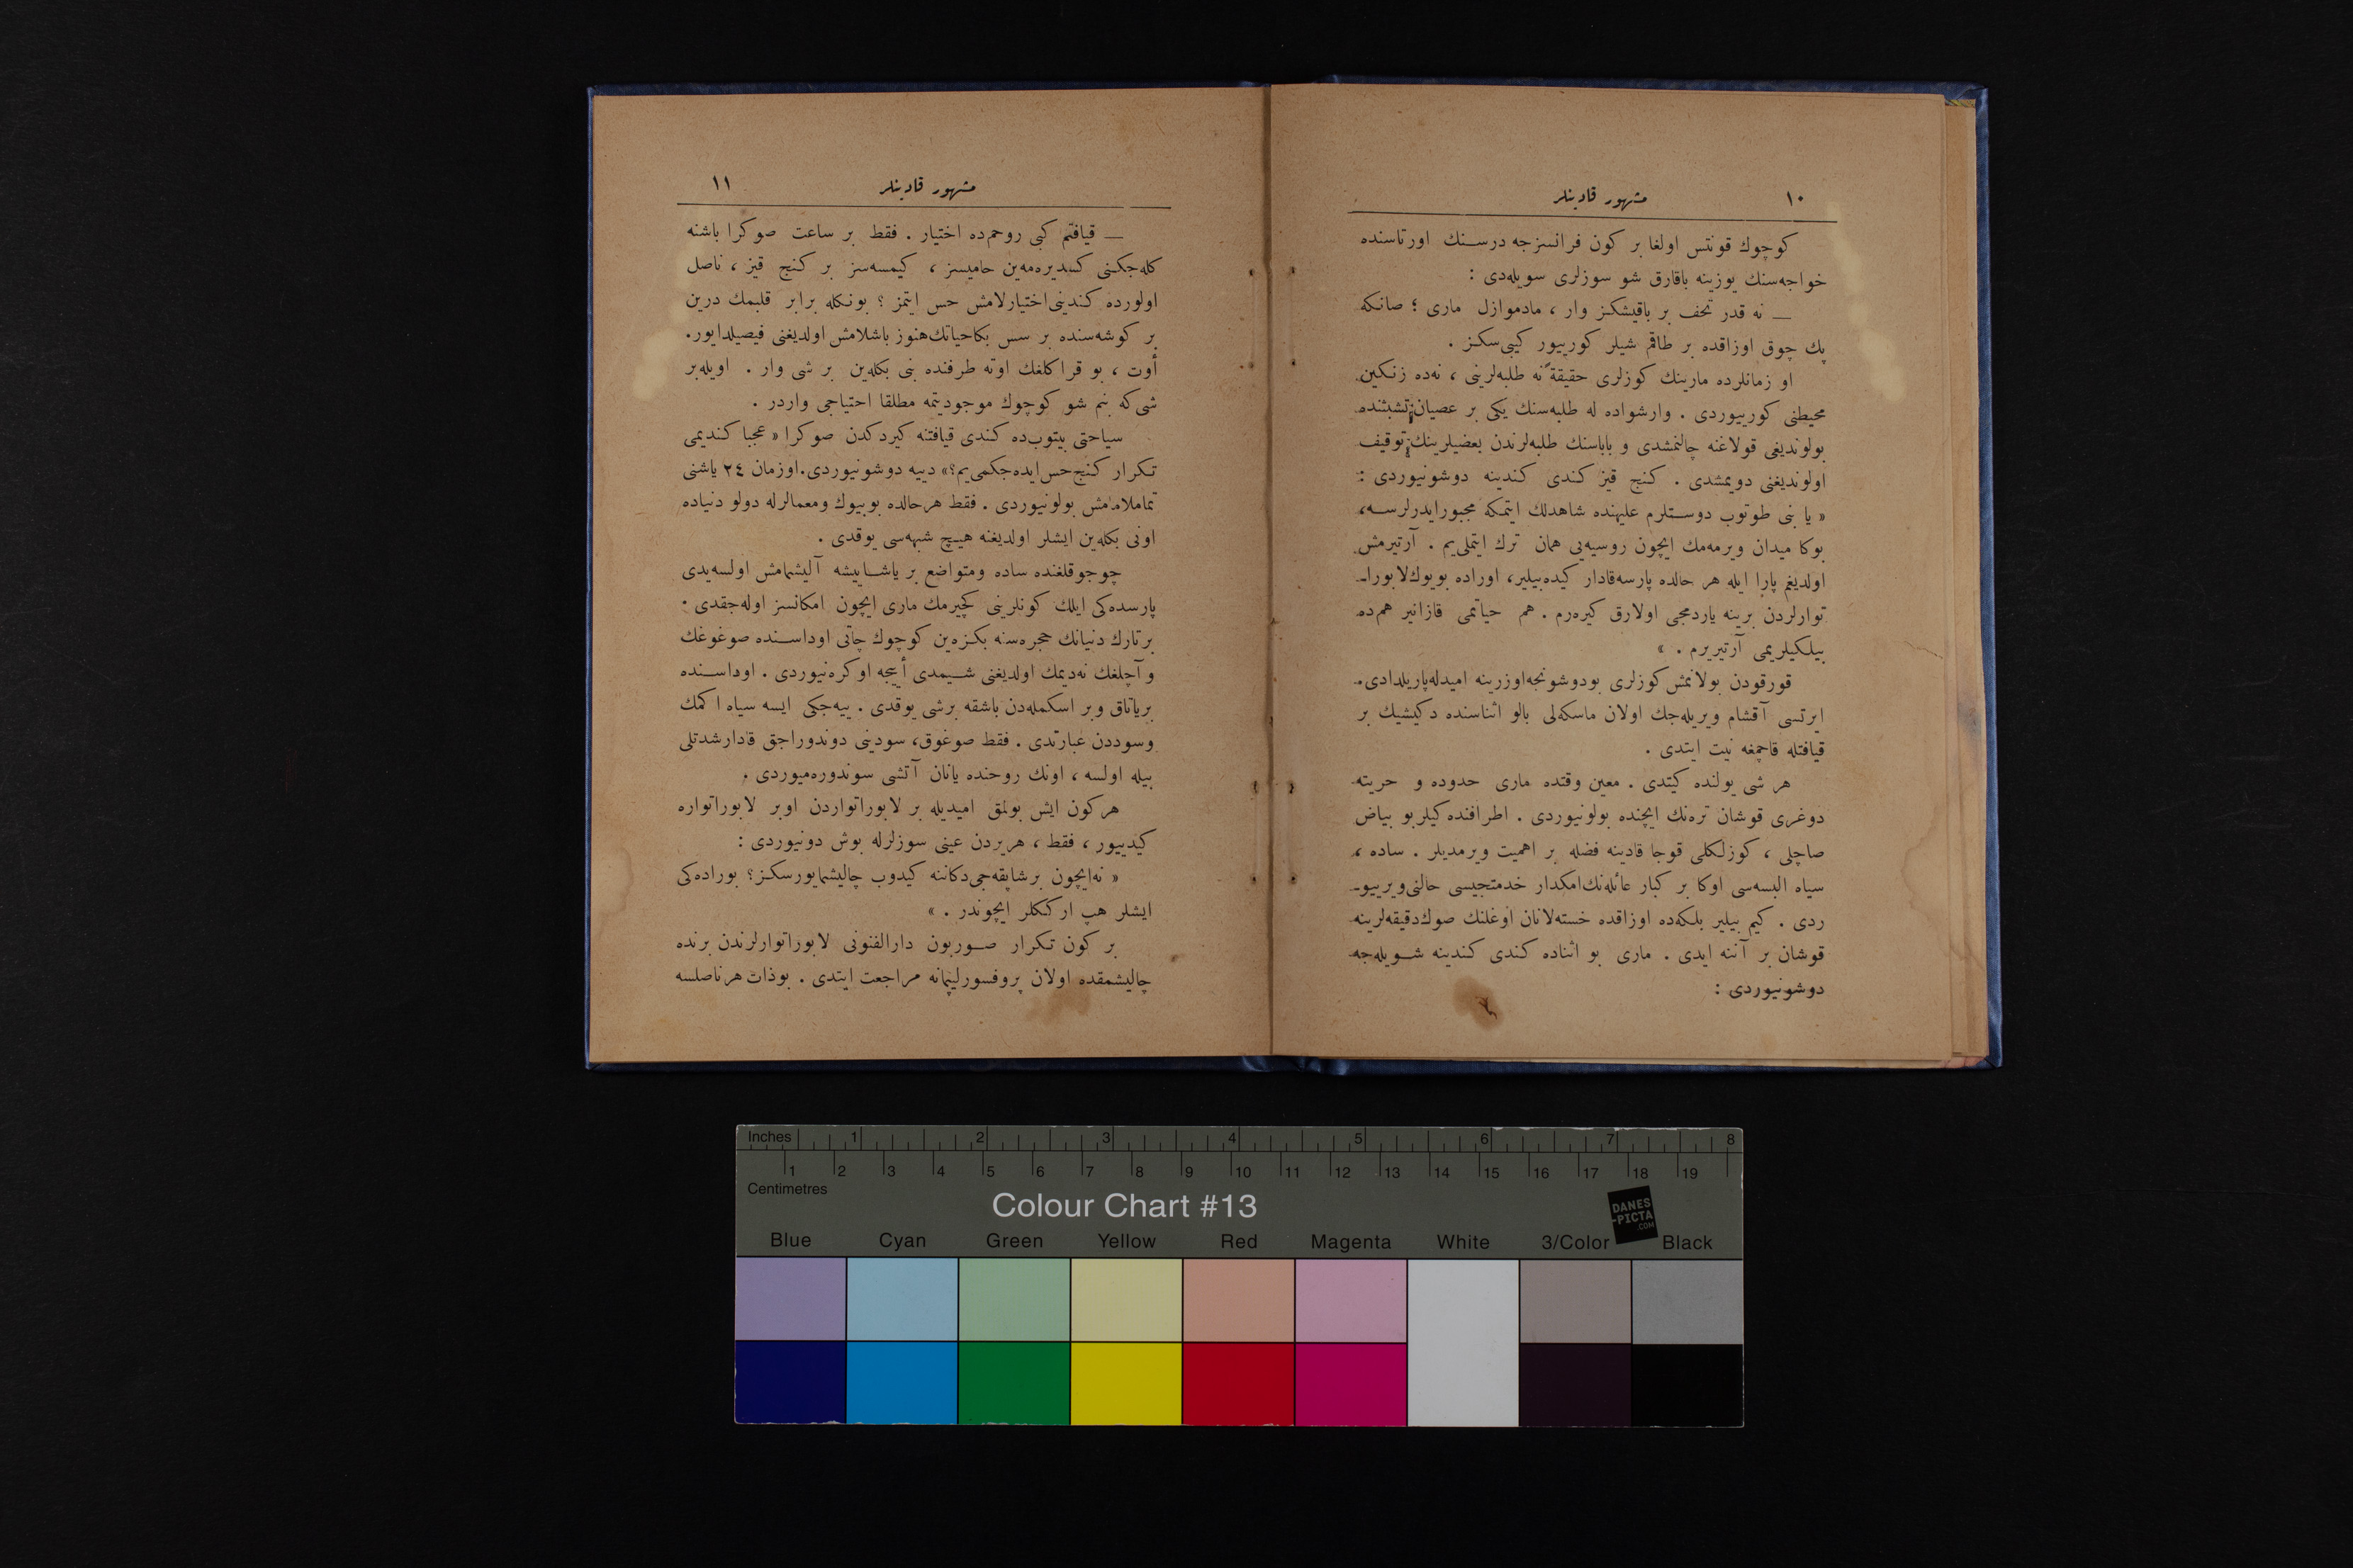 ١٠
مشهور قادينلر
كوچوك قونتس اولغا بر كون فرانسزجه درسنك اورتاسنده
خواجه‌سنك يوزينه باقارق شو سوزلرى سويله‌دى :
— نه قدر تحف بر باقيشكز وار ، مادموازل مارى ؛ صانكه
پك چوق اوزاقده بر طاقم شيلر كورييور كيبى‌سكز .
او زمانلرده مارينك كوزلرى حقيقةً نه طلبه‌لرينى ، نه‌ده زنكين
محيطنى كورييوردى . وارشواده له طلبه‌سنك يكى بر عصيان تشبثنده
بولونديغى قولاغنه چالنمشدى و باباسنك طلبه‌لرندن بعضيلرينك توقيف
اولونديغنى دويمشدى . كنج قيز كندى كندينه دوشونيوردى :
« يا بنى طوتوب دوستلرم عليهنده شاهدلك ايتمكه مجبور ايدرلرسه ،
بوكا ميدان ويرمه‌مك ايچون روسيه‌يى همان ترك ايتملى‌يم . آرتيرمش
اولديغم پارا ايله هر حالده پارسه‌قادار كيده‌بيلير، اوراده بويوك لابورا-
توارلردن برينه ياردمجى اولارق كيره‌رم . هم حياتمى قازانير هم‌ده
بيلكيلريمى آرتيريرم . »
قورقودن بولانمش كوزلرى بودوشونجه اوزرينه اميدله پاريلدادى .
ايرتسى آقشام ويريله‌جك اولان ماسكه‌لى بالو اثناسنده دكيشيك بر
قيافتله قاچمغه نيت ايتدى .
هر شى يولنده كيتدى . معين وقتده مارى حدوده و حريته
دوغرى قوشان تره‌نك ايچنده بولونيوردى . اطرافنده كيلر بو بياض
صاچلى ، كوزلكلى قوجا قادينه فضله بر اهميت ويرمديلر . ساده ،
سياه البسه‌سى اوكا بر كبار عائله‌نك امكدار خدمتجيسى حالنى ويرييو-
ردى . كيم بيلير بلكه‌ده اوزاقده خسته‌لانان اوغلنك صوك دقيقه‌لرينه
قوشان بر آننه ايدى . مارى بو اثناده كندى كندينه شويله‌جه
دوشونيوردى :
١١
مشهور قادينلر
— قيافتم كبى روحم‌ده اختيار . فقط بر ساعت صوكرا باشنه
كله‌جكنى كسديره‌مه‌ين حاميسز ، كيمسه‌سز بر كنج قيز ، ناصل
اولورده كندينى اختيارلامش حس ايتمز ؟ بونكله برابر قلبمك درين
بر كوشه‌سنده بر سس بكا حياتك هنوز باشلامش اولديغنى فيصيلدايور.
أوت ، بو قراكلغك اوته طرفنده بنى بكله‌ين بر شى وار . اويله بر
شى‌كه بنم شو كوچوك موجوديتمه مطلقا احتياجى واردر .
سياحتى بيتوب‌ده كندى قيافتنه كيردكدن صوكرا « عجبا كنديمى
تكرار كنج حس ايده‌جكمى‌يم؟» دييه دوشونيوردى. اوزمان ٢٤ ياشنى
تماملامامش بولونيوردى . فقط هرحالده بو بيوك و معمالرله دولو دنياده
اونى بكله‌ين ايشلر اولديغنه هيچ شبهه‌سى يوقدى .
چوجوقلغنده ساده ومتواضع بر ياشاييشه آليشمامش اولسه‌يدى
پارسده‌كى ايلك كونلرينى كچيرمك مارى ايچون امكانسز اوله‌جقدى :
بر تارك دنيانك حجره‌سنه بكزه‌ين كوچوك چاتى اوداسنده صوغوغك
و آچلغك نه‌ديمك اولديغنى شيمدى أييجه اوكره‌نيوردى . اوداسنده
برياتاق وبر اسكمله‌دن باشقه برشى يوقدى . ييه‌جكى ايسه سياه اكمك
وسوددن عبارتدى . فقط صوغوق، سودينى دوندوراجق قادارشدتلى
بيله اولسه ، اونك روحنده يانان آتشى سوندوره‌ميوردى .
هر كون ايش بولمق اميديله بر لابوراتواردن اوبر لابوراتواره
كيدييور ، فقط ، هريردن عينى سوزلرله بوش دونيوردى :
« نه‌ايچون بر شاپقه‌جى دكاننه كيدوب چاليشمايورسكز؟ بوراده‌كى
ايشلر هپ ارككلر ايچوندر . »
بر كون تكرار صوربون دارالفنونى لابوراتوارلرندن برنده
چاليشمقده اولان پروفسور ليپمانه مراجعت ايتدى . بوذات هر ناصلسه
Inches 1 2 3 4 5 6 7 8
1 2 3 4 5 6 7 8 9 10 11 12 13 14 15 16 17 18 19
Centimetres
Colour Chart #13
DANES
-PICTA
.COM
Blue Cyan Green Yellow Red Magenta White 3/Color Black